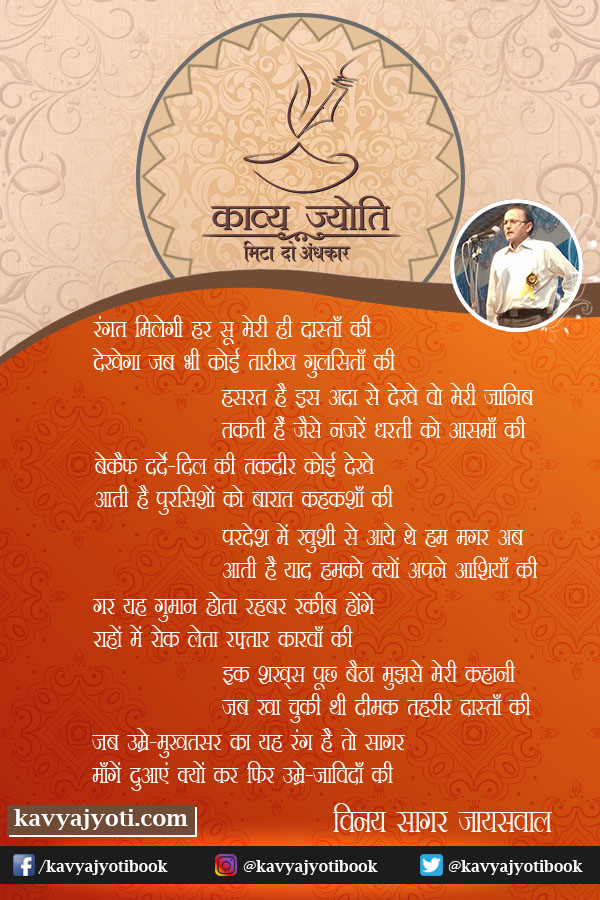 काव्य ज्योति
मिटा दो अंधकार
रंगत मिलेगी हर सू मेरी ही दास्ताँ की
देखेगा जब भी कोई तारीख गुलसिताँ की
हसरत है इस अदा से देखे वो मेरी जानिब
तकती हैं जैसे नजरें धरती को आसमाँ की
बेकैफ दर्दे-दिल की तकदीर कोई देखे
आती है पुरसिशों को बारात कहकशाँ की
परदेश में खुशी से आये थे हम मगर अब
आती है याद हमको क्यों अपने आशियाँ की
गर यह गुमान होता रहबर रकीब होंगे
राहों में रोक लेता रफ़्तार कारवाँ की
इक शख़्स पूछ बैठा मुझसे मेरी कहानी
जब खा चुकी थी दीमक तहरीर दास्ताँ की
जब उम्रे-मुखतसर का यह रंग है तो सागर
माँगें दुआएं क्यों कर फिर उम्रे-जाविदाँ की
विनय सागर जायसवाल
kavyajyoti.com
/kavyajyotibook @kavyajyotibook @kavyajyotibook